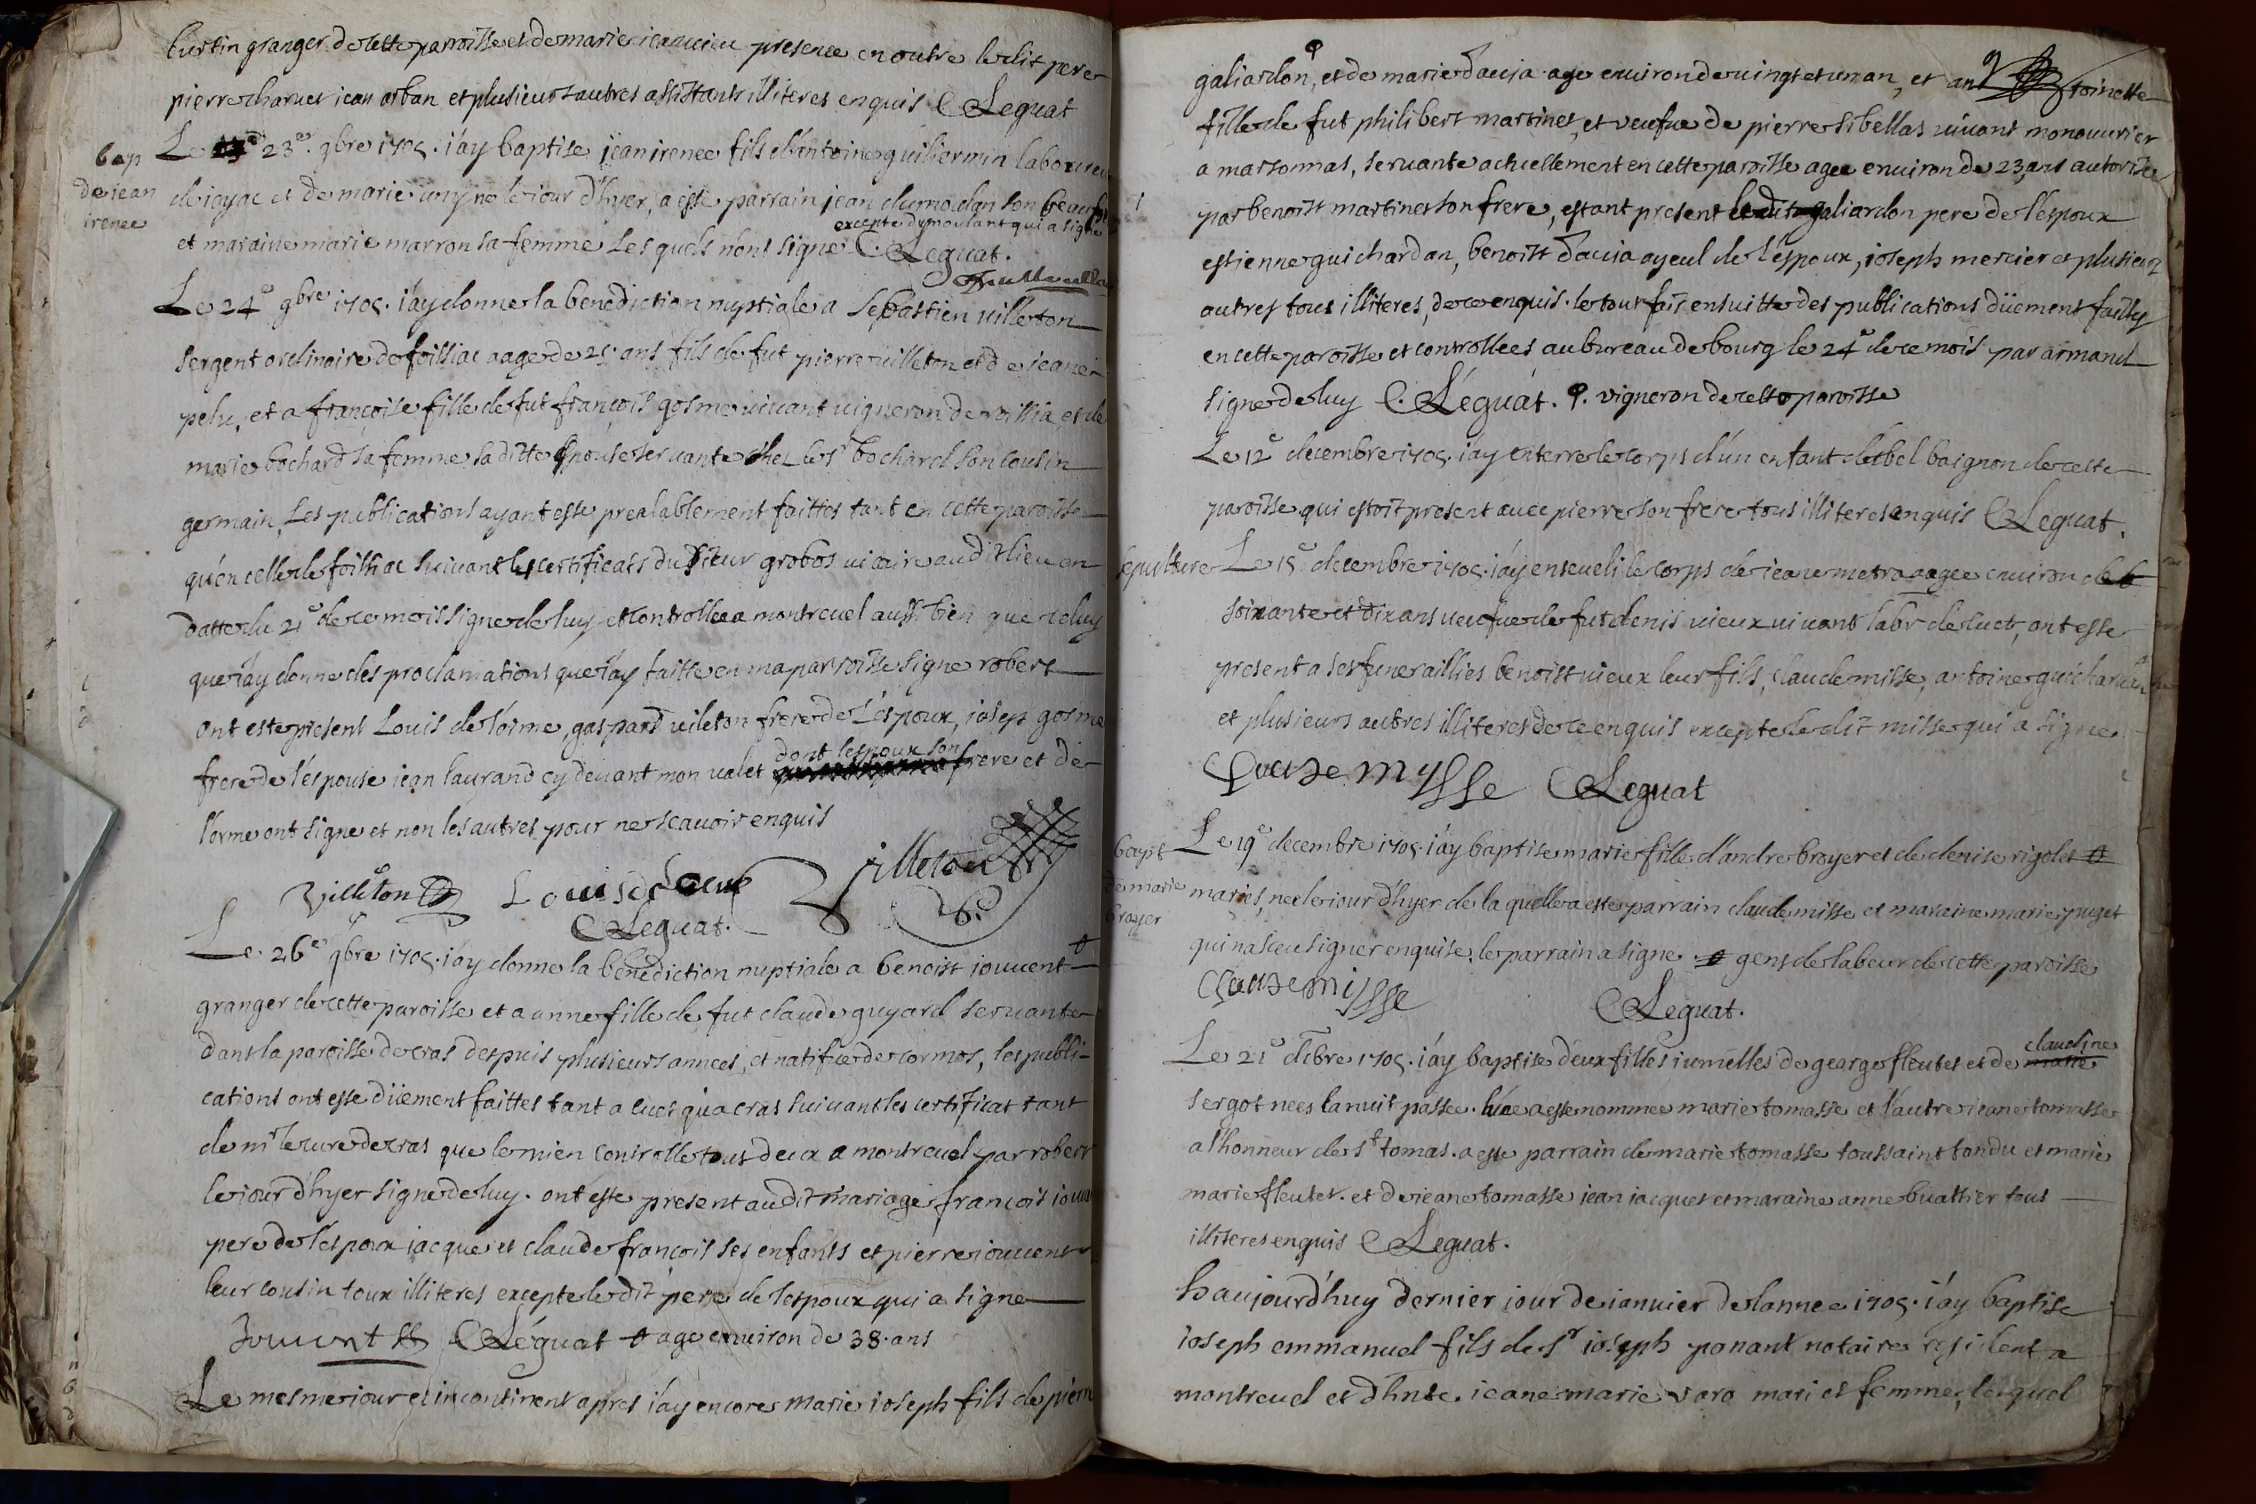 curtin granger de cette parroisse et de marie presence en outre ledit pere
pierre charvet jean orban et plusieurs autres assistants illiteres enquis C Leguat
bap
de jean
irenee
Le 23e 9bre 1705. i'ay baptise jean irenee fils d'antoine guillermin laboureur
de joyac et de marie ne le jour d'hyer, a este parrain jean dumolan son
excepte dumoulant qui a signe
et maraine marie marron sa femme lesquels n'ont signe C. Leguat.
Le 24e 9bre 1705. i'ay donne la benediction nuptiale a Sebastien villeton
sergent ordinaire de foissiac aage de 25 ans fils de fut pierre villeton et de jeane
pelu, et a francoise fille de fut francois gosme vivant vigneron de et de
marie bochard sa femme la ditte epouse servante chez le sr bochard son cousin
germain, les publications ayant este prealablement faittes tant en cette paroisse
qu'en celle de foissiac suivant les certificats du sieur grobos vicaire audit lieu en
datte du 21e de ce mois signe de luy et controlle a montrevel aussi bien que celuy
que i'ay donne des proclamations que i'ay faitte en ma parroisse signe robert
ont este present Louis de lorme, gaspard vileton frere de l'espoux, joseph gosme
dont lespoux son
frere de l'espouse jean laurand cy devant mon valet frere et de
lorme ont signe et non les autres pour ne scavoir enquis
Villeton Louis de Lorme Villeton
C Leguat.
Le 26e 9bre 1705. i'ay donne la benediction nuptiale a benoist jouvent
granger de cette paroisse et a anne fille de fut claude guyard servante
dans la paroisse de cras despuis plusieurs annees, et natifve de cormos, les publi-
cations ont este düement faittes tant a lues qu'a cras suivant les certificat tant
de mr le cure de cras que le mien controlle tous deux a montrevel par robert
le jour d'hyer signe de luy. ont este present audit mariage francois jouvent
pere de lespoux jacque et claude francois ses enfants et pierre jouvent
leur cousin tous illiteres excepte le dit pere de lespoux qui a signe
Jouvent C Leguat age environ de 38 ans
Le mesme jour et incontinent apres i'ay encore marie joseph fils de pierre
galiardon, et de marie davia age environ de vingt et un an, et an toinette
fille de fut philibert martinet, et veufve de pierre sibellas vivant manouvrier
a marsonnas, servante actuellement en cette paroisse agee environ de 23 ans autorisee
par benoist martinet son frere, estant present ledit galiardon pere de l'espoux
estienne guichardan, benoist davia ayeul de l'espoux, joseph mercier et plusieurs
autres tous illiteres, de ce enquis. le tout fait ensuitte des publications düement faittes
en cette paroisse et controllees au bureau de bourg le 24e de ce mois par armand
signe de luy C. Léguat. vigneron de cette paroisse
Le 12e decembre 1705. i'ay enterre le corps d'un enfant d'abel baignon de cette
paroisse qui estoit present avec pierre son frere tous illiteres enquis C Leguat.
sepulture
Le 15e decembre 1705. i'ay enseveli le corps de jeane metra aagee environ de
soixante et dix ans veufve de fut denis vieux vivant labr de luet, ont este
present a ses funerailles benoist vieux leur fils, claude misse, antoine guichardan
et plusieurs autres illiteres de ce enquis excepte le dit misse qui a signe
Claude Mysse C Leguat
bapt
de marie
broyer
Le 19e decembre 1705. i'ay baptise marie fille d'andre broyer et de denise rigolet
maries, nee le jour d'hyer de laquelle a este parrain claude misse et maraine marie puget
qui na sceu signer enquise, le parrain a signe. gens de labeur de cette paroisse
Claude Misse C Leguat.
claudine
Le 21e dcbre 1705. i'ay baptise deux filles jumelles de gearge fleutet et de
sergot nees la nuit passee. l'une a este nommee marie tomasse et l'autre jeane tomasse
a l'honneur de st tomas. a este parrain de marie tomasse toussaint tondu et marie
marie fleutet. et de jeane tomasse jean jacquet et maraine anne buattier tous
illiteres enquis C Leguat.
haujourd'huy dernier jour de janvier de lannee 1705. i'ay baptise
joseph emmanuel fils de sr joseph ponant notaire resident a
montrevel et d'hnte. jeane marie varo mari et femme, lequel